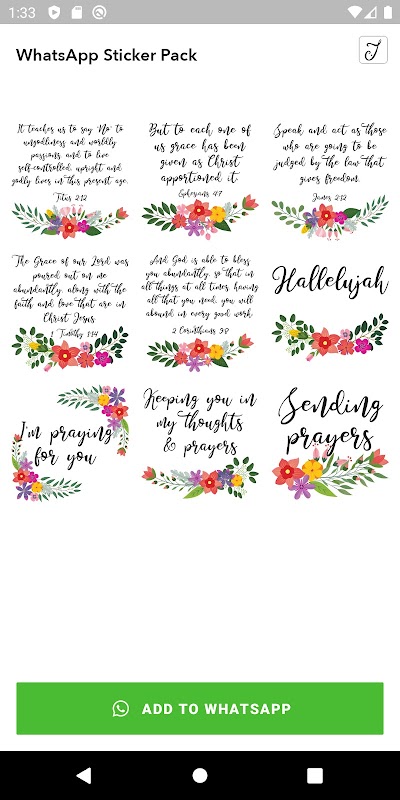 1:33
WhatsApp Sticker Pack
J
It teaches us to say "No" to
ungodliness and worldly
passions, and to live
self-controlled, upright and
godly lives in this present age.
Titus 2:12
But to each one of
us grace has been
given as Christ
apportioned it.
Ephesians 4:7
Speak and act as those
who are going to be
judged by the law that
gives freedom.
James 2:12
The Grace of our Lord was
poured out on me
abundantly, along with the
faith and love that are in
Christ Jesus.
1 Timothy 1:14
And God is able to bless
you abundantly, so that in
all things at all times, having
all that you need, you will
abound in every good work.
2 Corinthians 9:8
Hallelujah
I'm praying
for you
Keeping you in
my thoughts
& prayers
Sending
prayers
ADD TO WHATSAPP